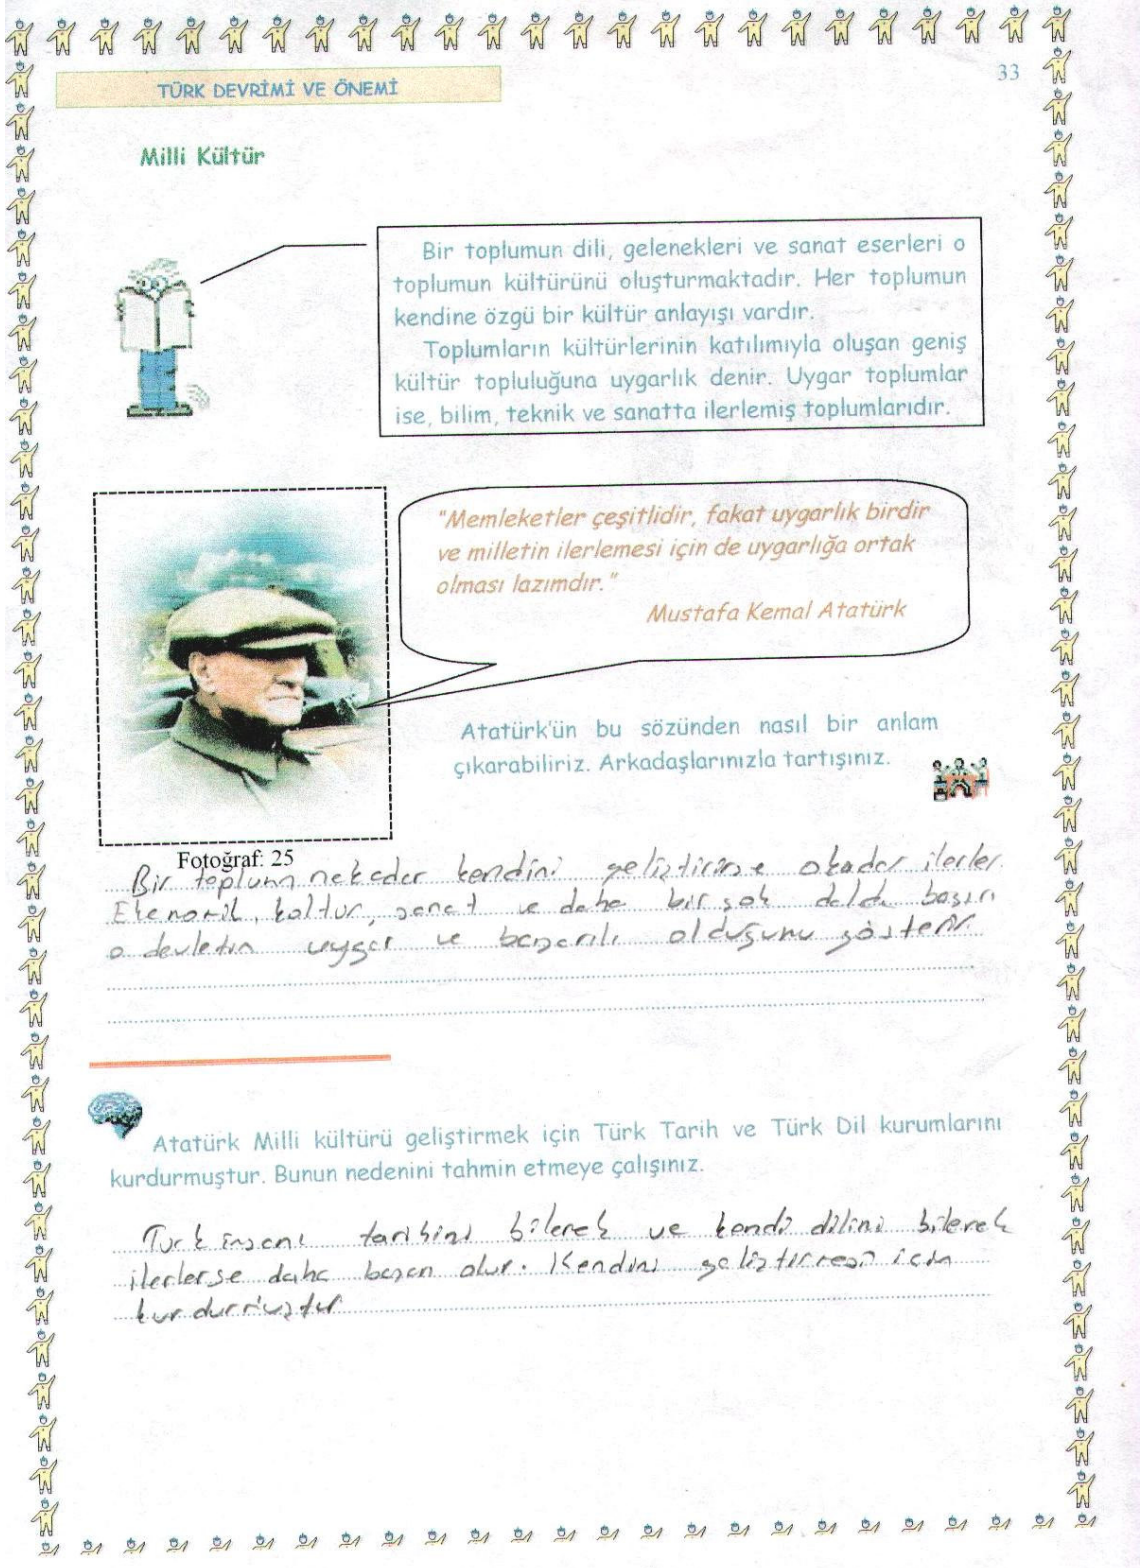 33
TÜRK DEVRİMİ VE ÖNEMİ
Milli Kültür
Bir toplumun dili, gelenekleri ve sanat eserleri o
toplumun kültürünü oluşturmaktadır. Her toplumun
kendine özgü bir kültür anlayışı vardır.
Toplumların kültürlerinin katılımıyla oluşan geniş
kültür topluluğuna uygarlık denir. Uygar toplumlar
ise, bilim, teknik ve sanatta ilerlemiş toplumlarıdır.
"Memleketler çeşitlidir, fakat uygarlık birdir
ve milletin ilerlemesi için de uygarlığa ortak
olması lazımdır."
Mustafa Kemal Atatürk
Atatürk'ün bu sözünden nasıl bir anlam
çıkarabiliriz. Arkadaşlarınızla tartışınız.
Fotoğraf: 25
Bir toplum nekadar kendini geliştirirse okadar ilerler.
Ekonomik, kültür, sanat ve daha birçok dalda başarı
o devletin uygar ve başarılı olduğunu gösterir.
Atatürk Milli kültürü geliştirmek için Türk Tarih ve Türk Dil kurumlarını
kurdurmuştur. Bunun nedenini tahmin etmeye çalışınız.
Türk insanı tarihini bilerek ve kendi dilini bilerek
ilerlerse daha başarı olur. Kendini geliştirmesi için
kurdurmuştur